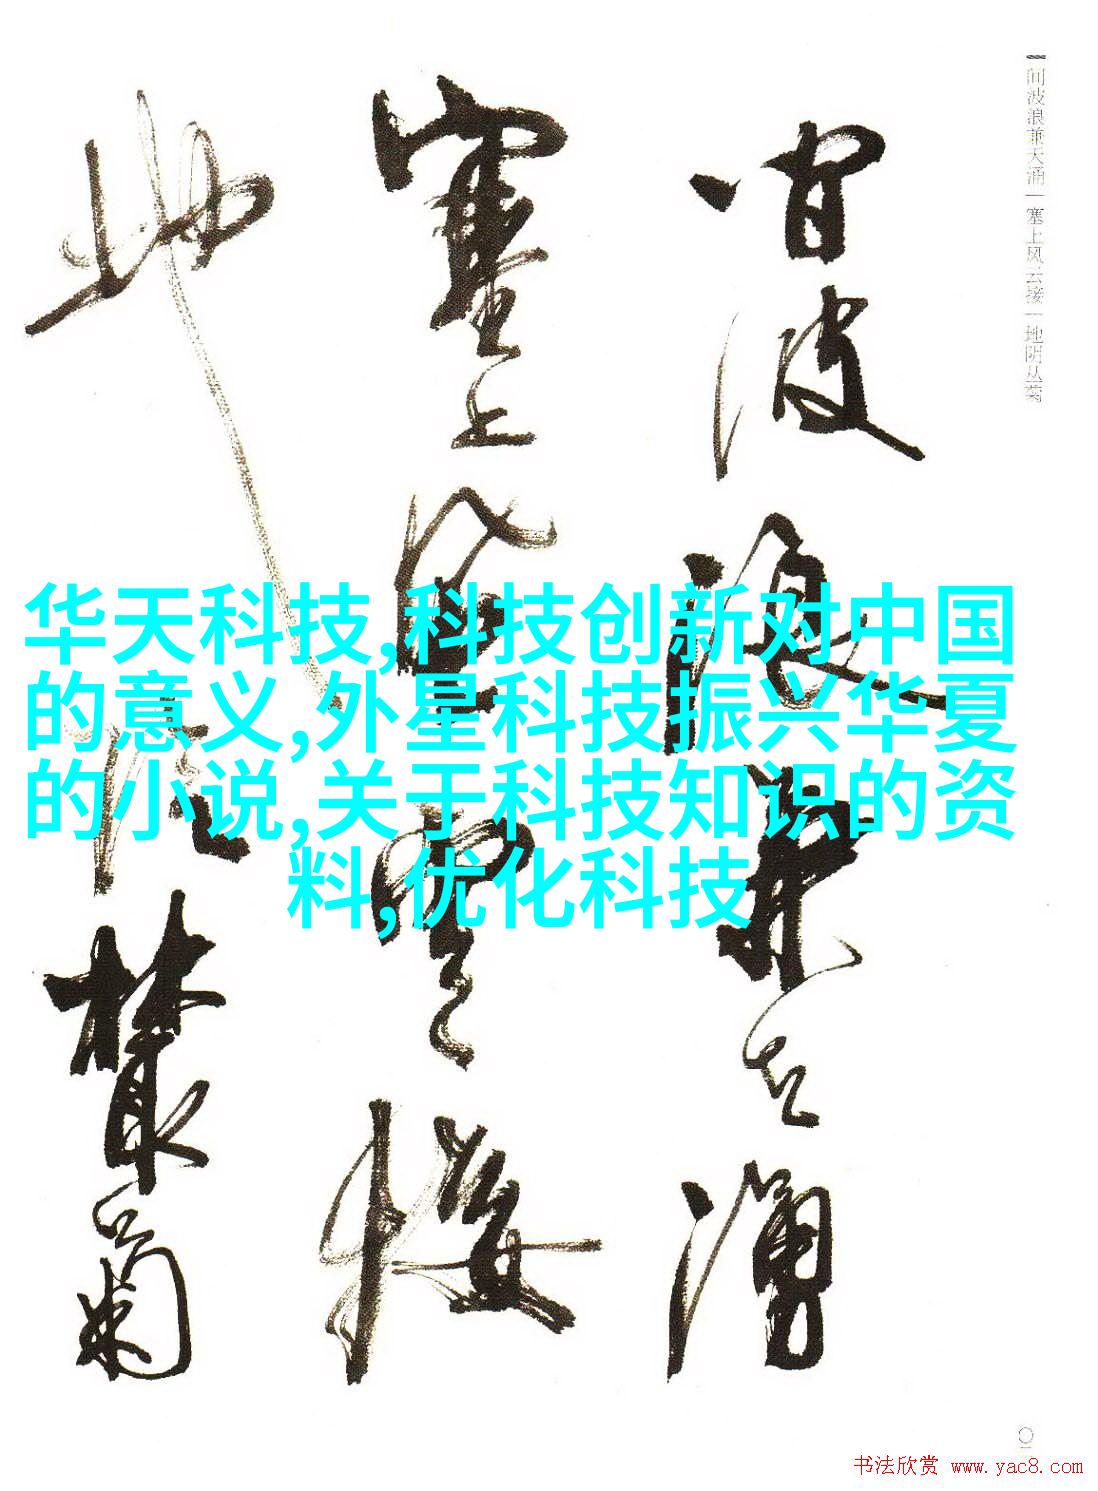 间波浪兼天涌｜塞上风云接｜地阴丛菊
间波浪兼天涌
塞上风云接
地阴丛菊
华天科技,科技创新对中国
的意义,外星科技振兴华夏
的小说,关于科技知识的资
料,优化科技
书法欣赏 www.yac8.com